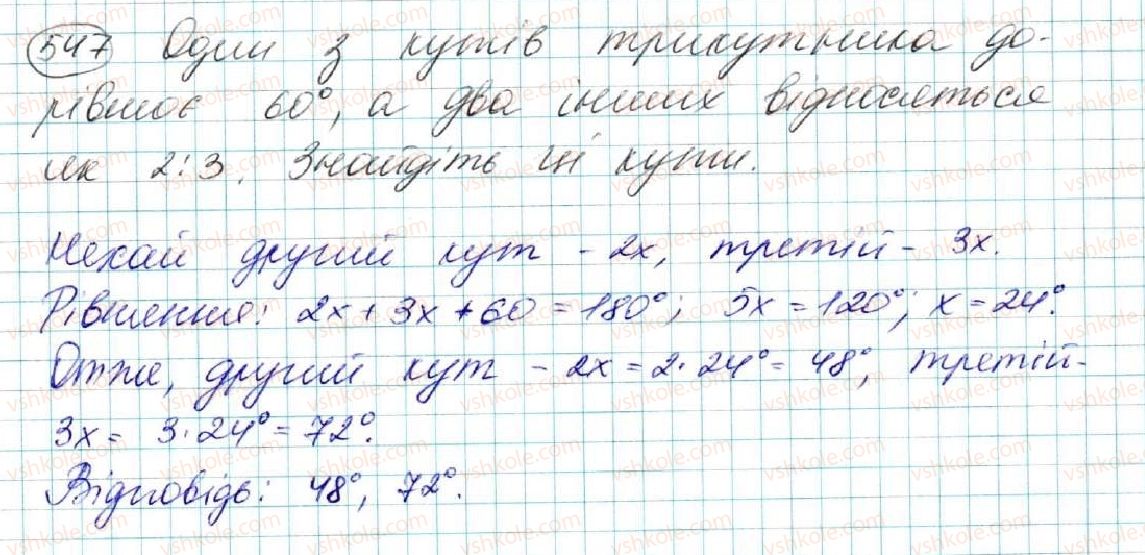 547 Один з кутів трикутника до-
рівнює 60°, а два інших відносяться
як 2:3. Знайдіть ці кути.
Нехай другий кут - 2x, третій - 3x.
Рівняння: 2x + 3x + 60 = 180°; 5x = 120°; x = 24°.
Отже, другий кут - 2x = 2·24° = 48°, третій-
3x = 3·24° = 72°.
Відповідь: 48°, 72°.